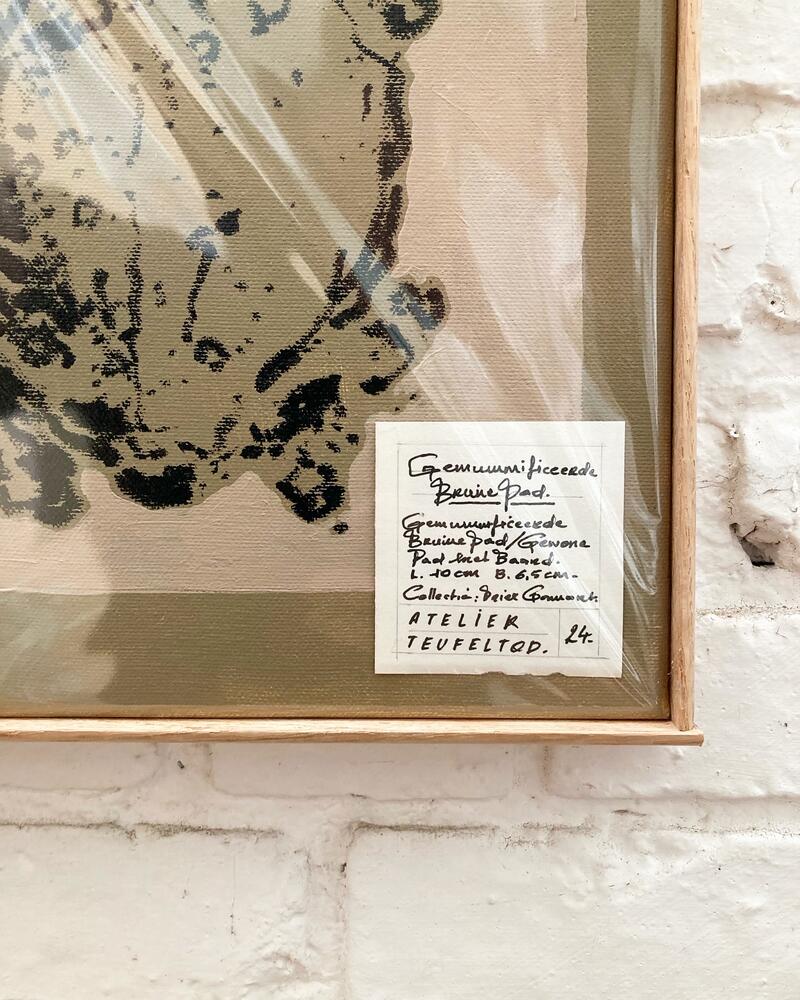 Gemummificeerde
Bruine Pad.
Gemummificeerde
Bruine Pad/Gewone
Pad met Baard.
L. 10cm B. 6,5cm.
Collectie:
ATELIER
TEUFELTOD.
24-